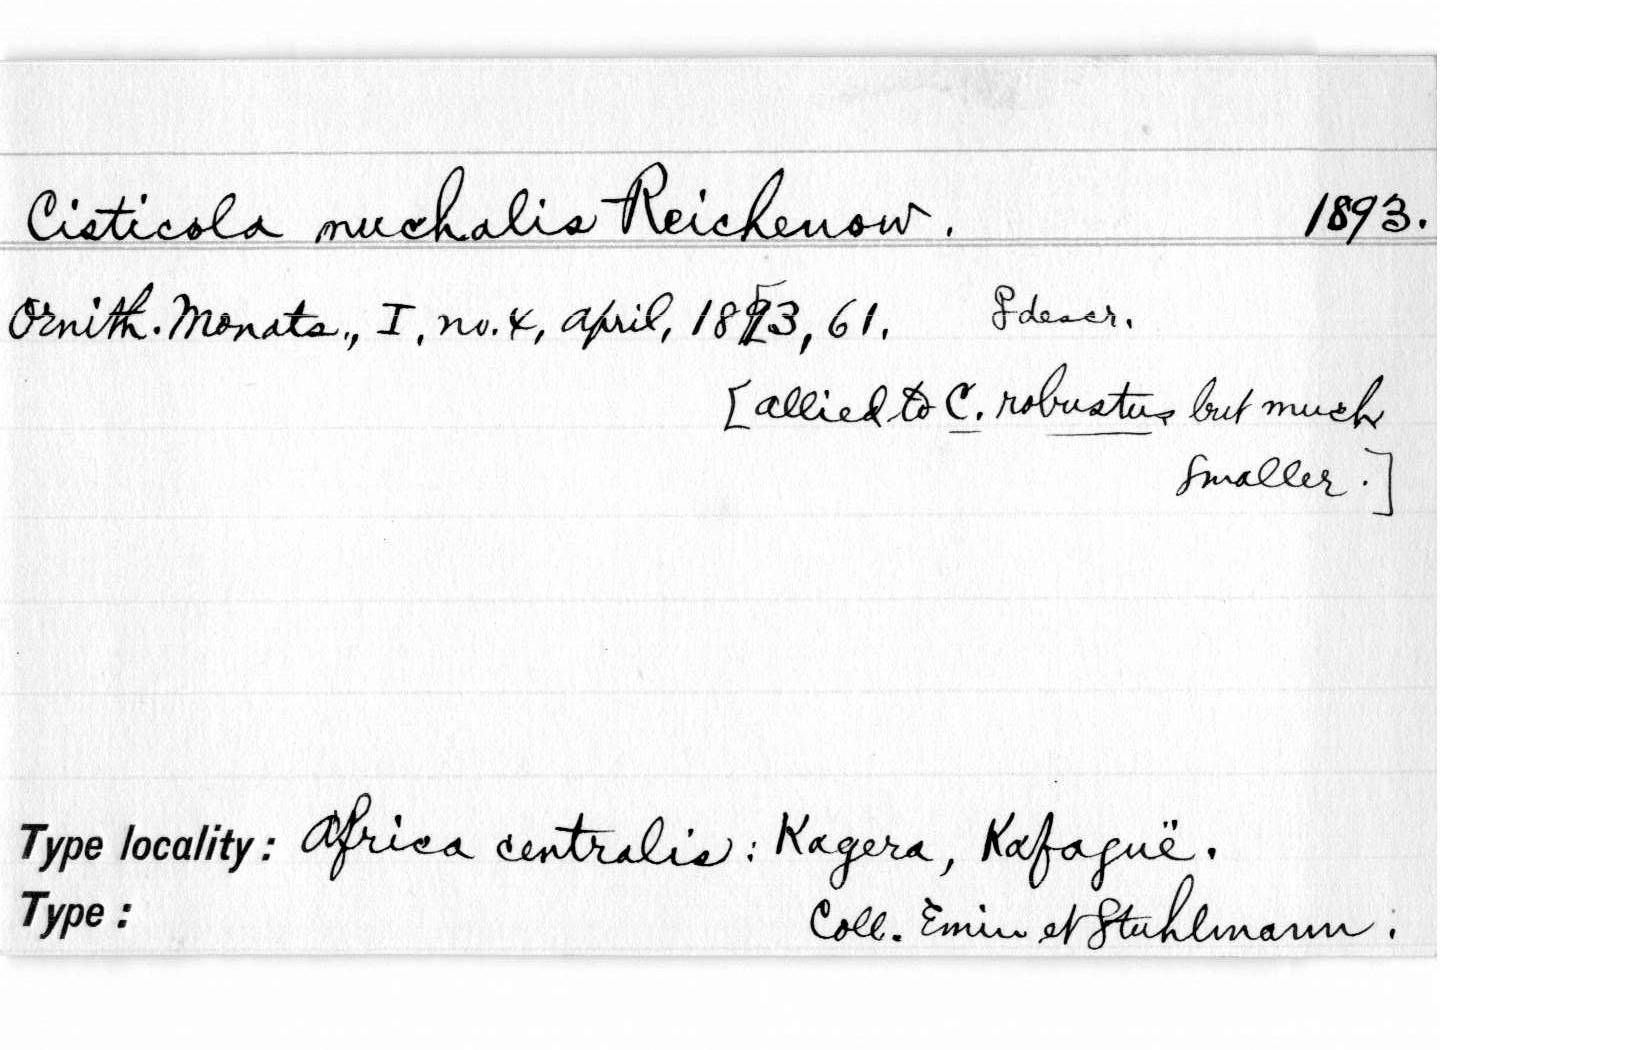 Cisticola nuchalis Reichenow. 1893.
Ornith. Monats., I, no. 4, April, 1893, 61. descr.
[allied to C. robustus but much
smaller.]
Type locality: Africa centralis: Kagera, Kafaguë.
Type: Coll. Emin et Stuhlmann.